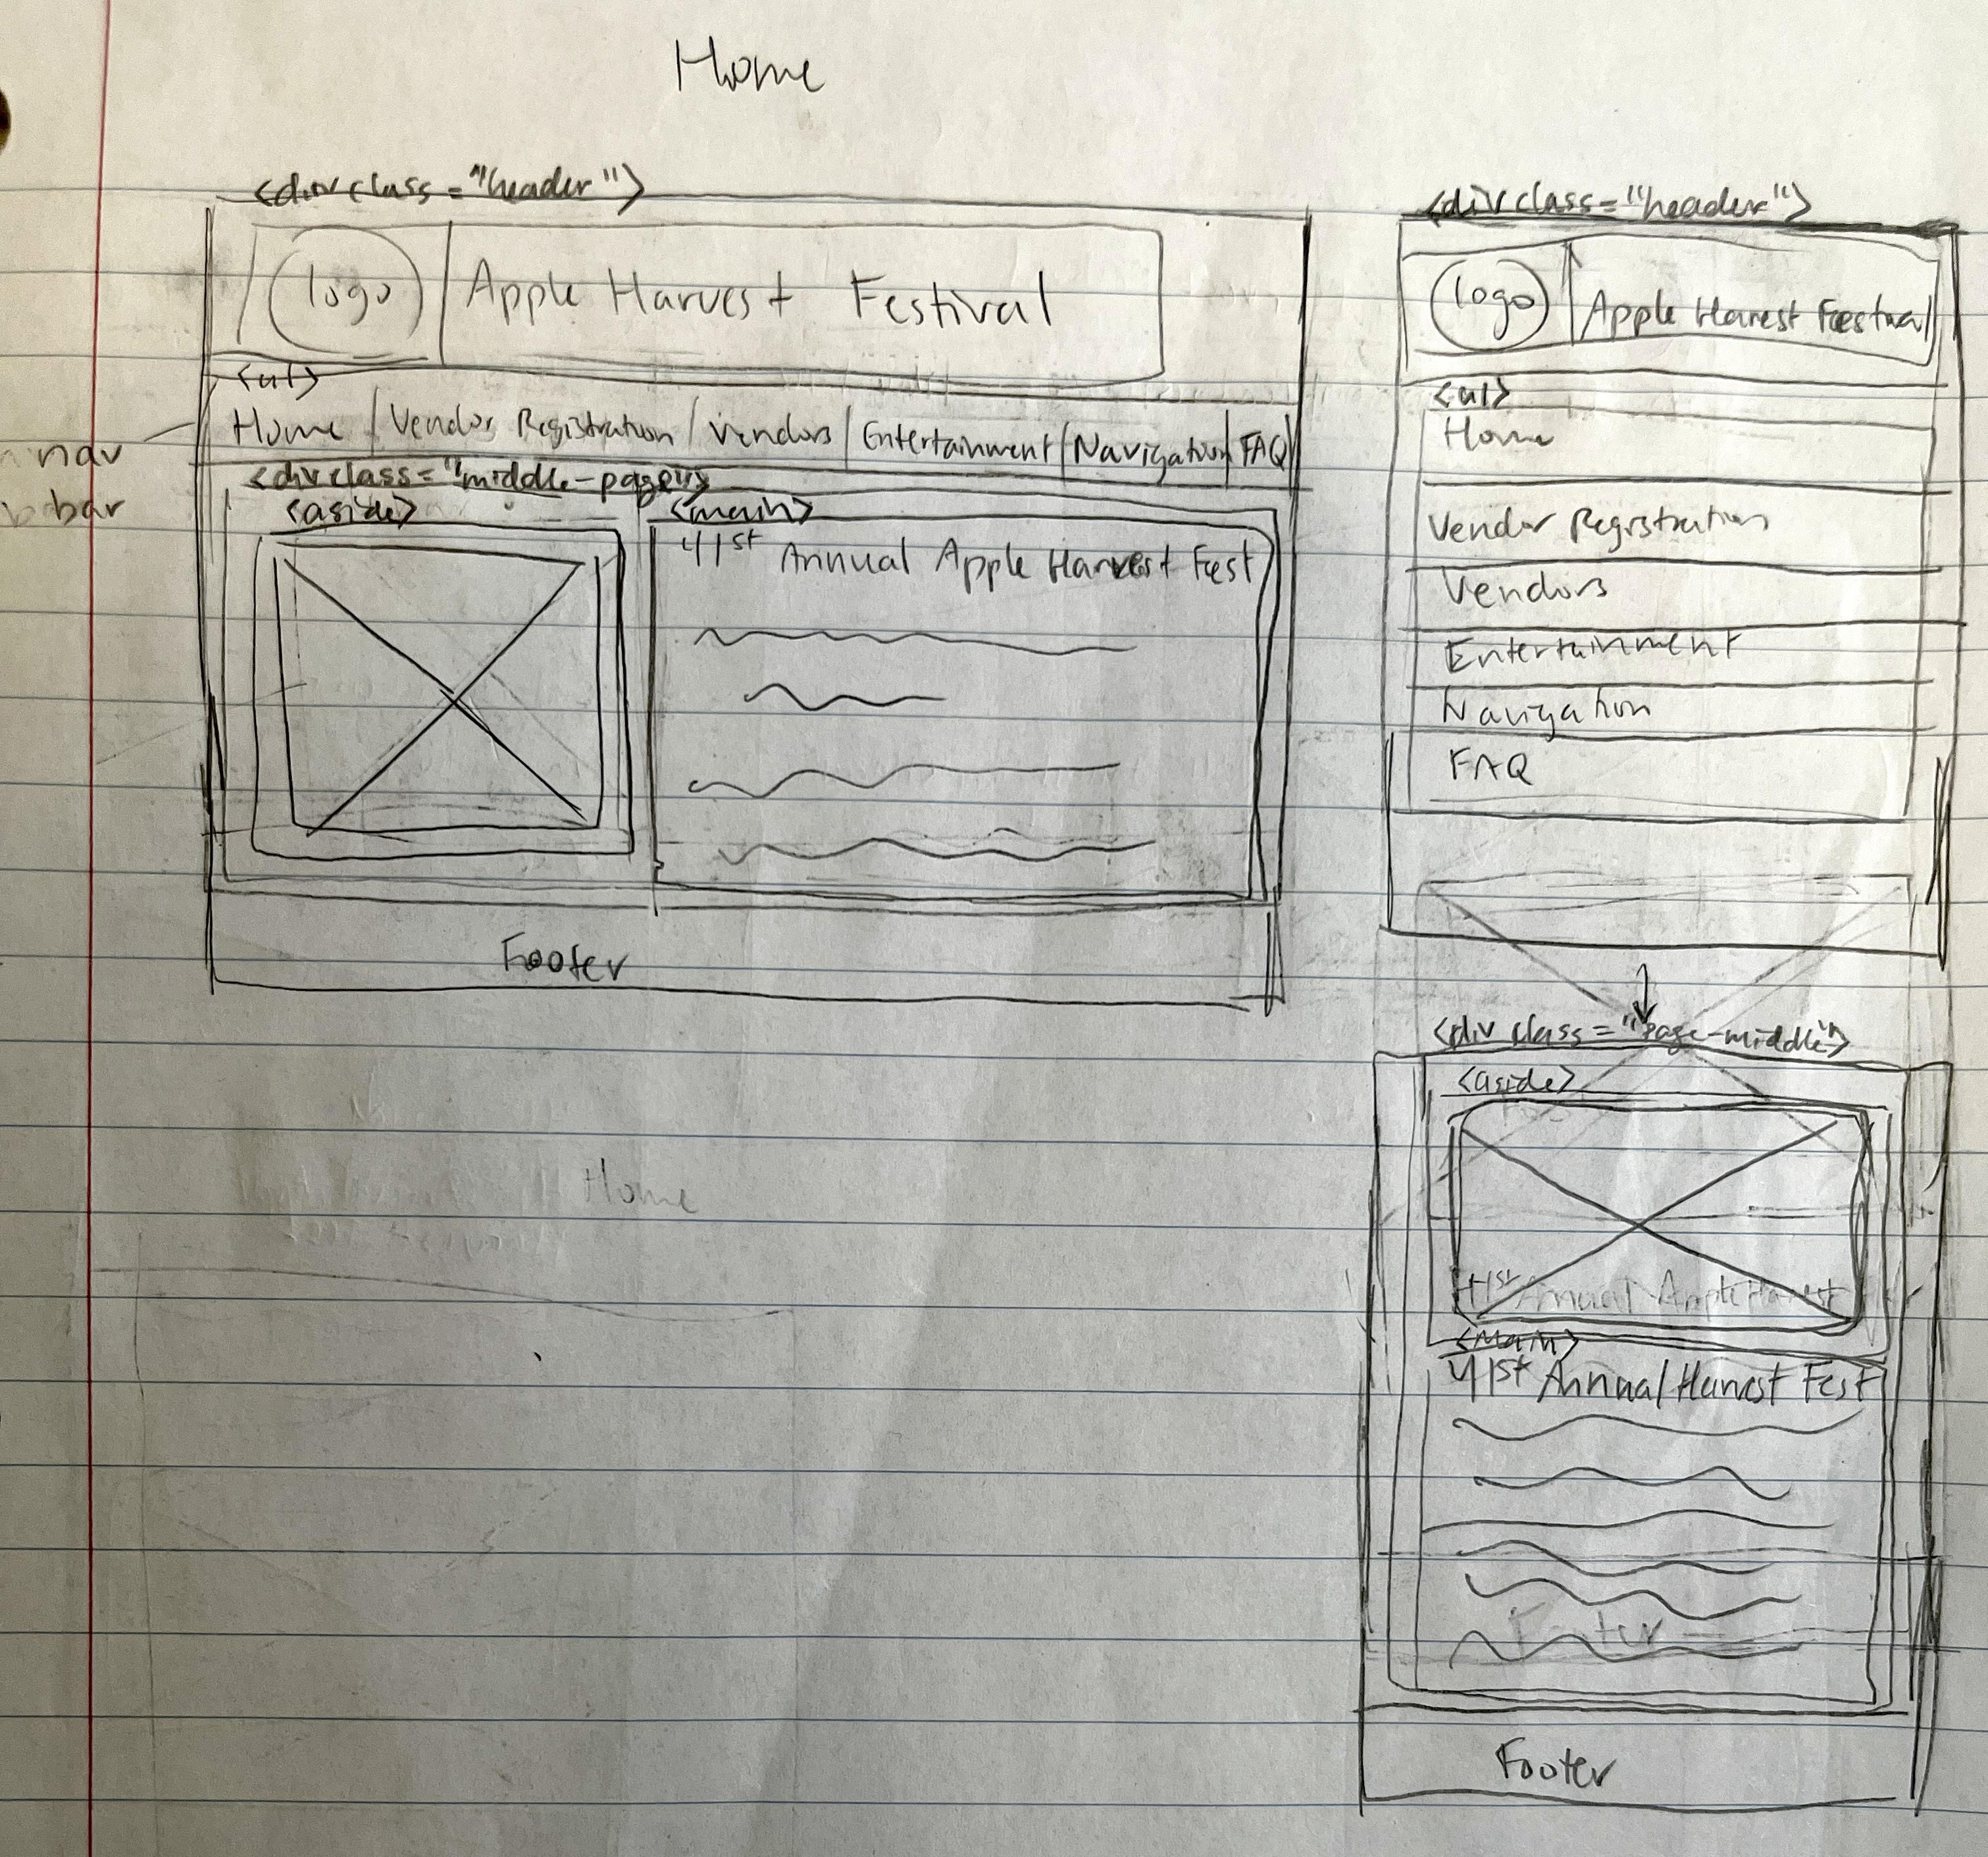 Home
<div class="header">
logo Apple Harvest Festival
<ul>
Home / Vendor Registration / Vendors / Entertainment / Navigation FAQ
nav
bar
<div class="middle-page">
<aside>
<main>
41st Annual Apple Harvest Fest
Footer
Home
<div class="header">
logo Apple Harest Festival
<ul>
Home
Vendor Registration
Vendors
Entertainment
Navigation
FAQ
<div class="page-middle">
<aside>
41st Annual Apple Harvest
<main>
41st Annual Harvest Fest
Footer
Footer